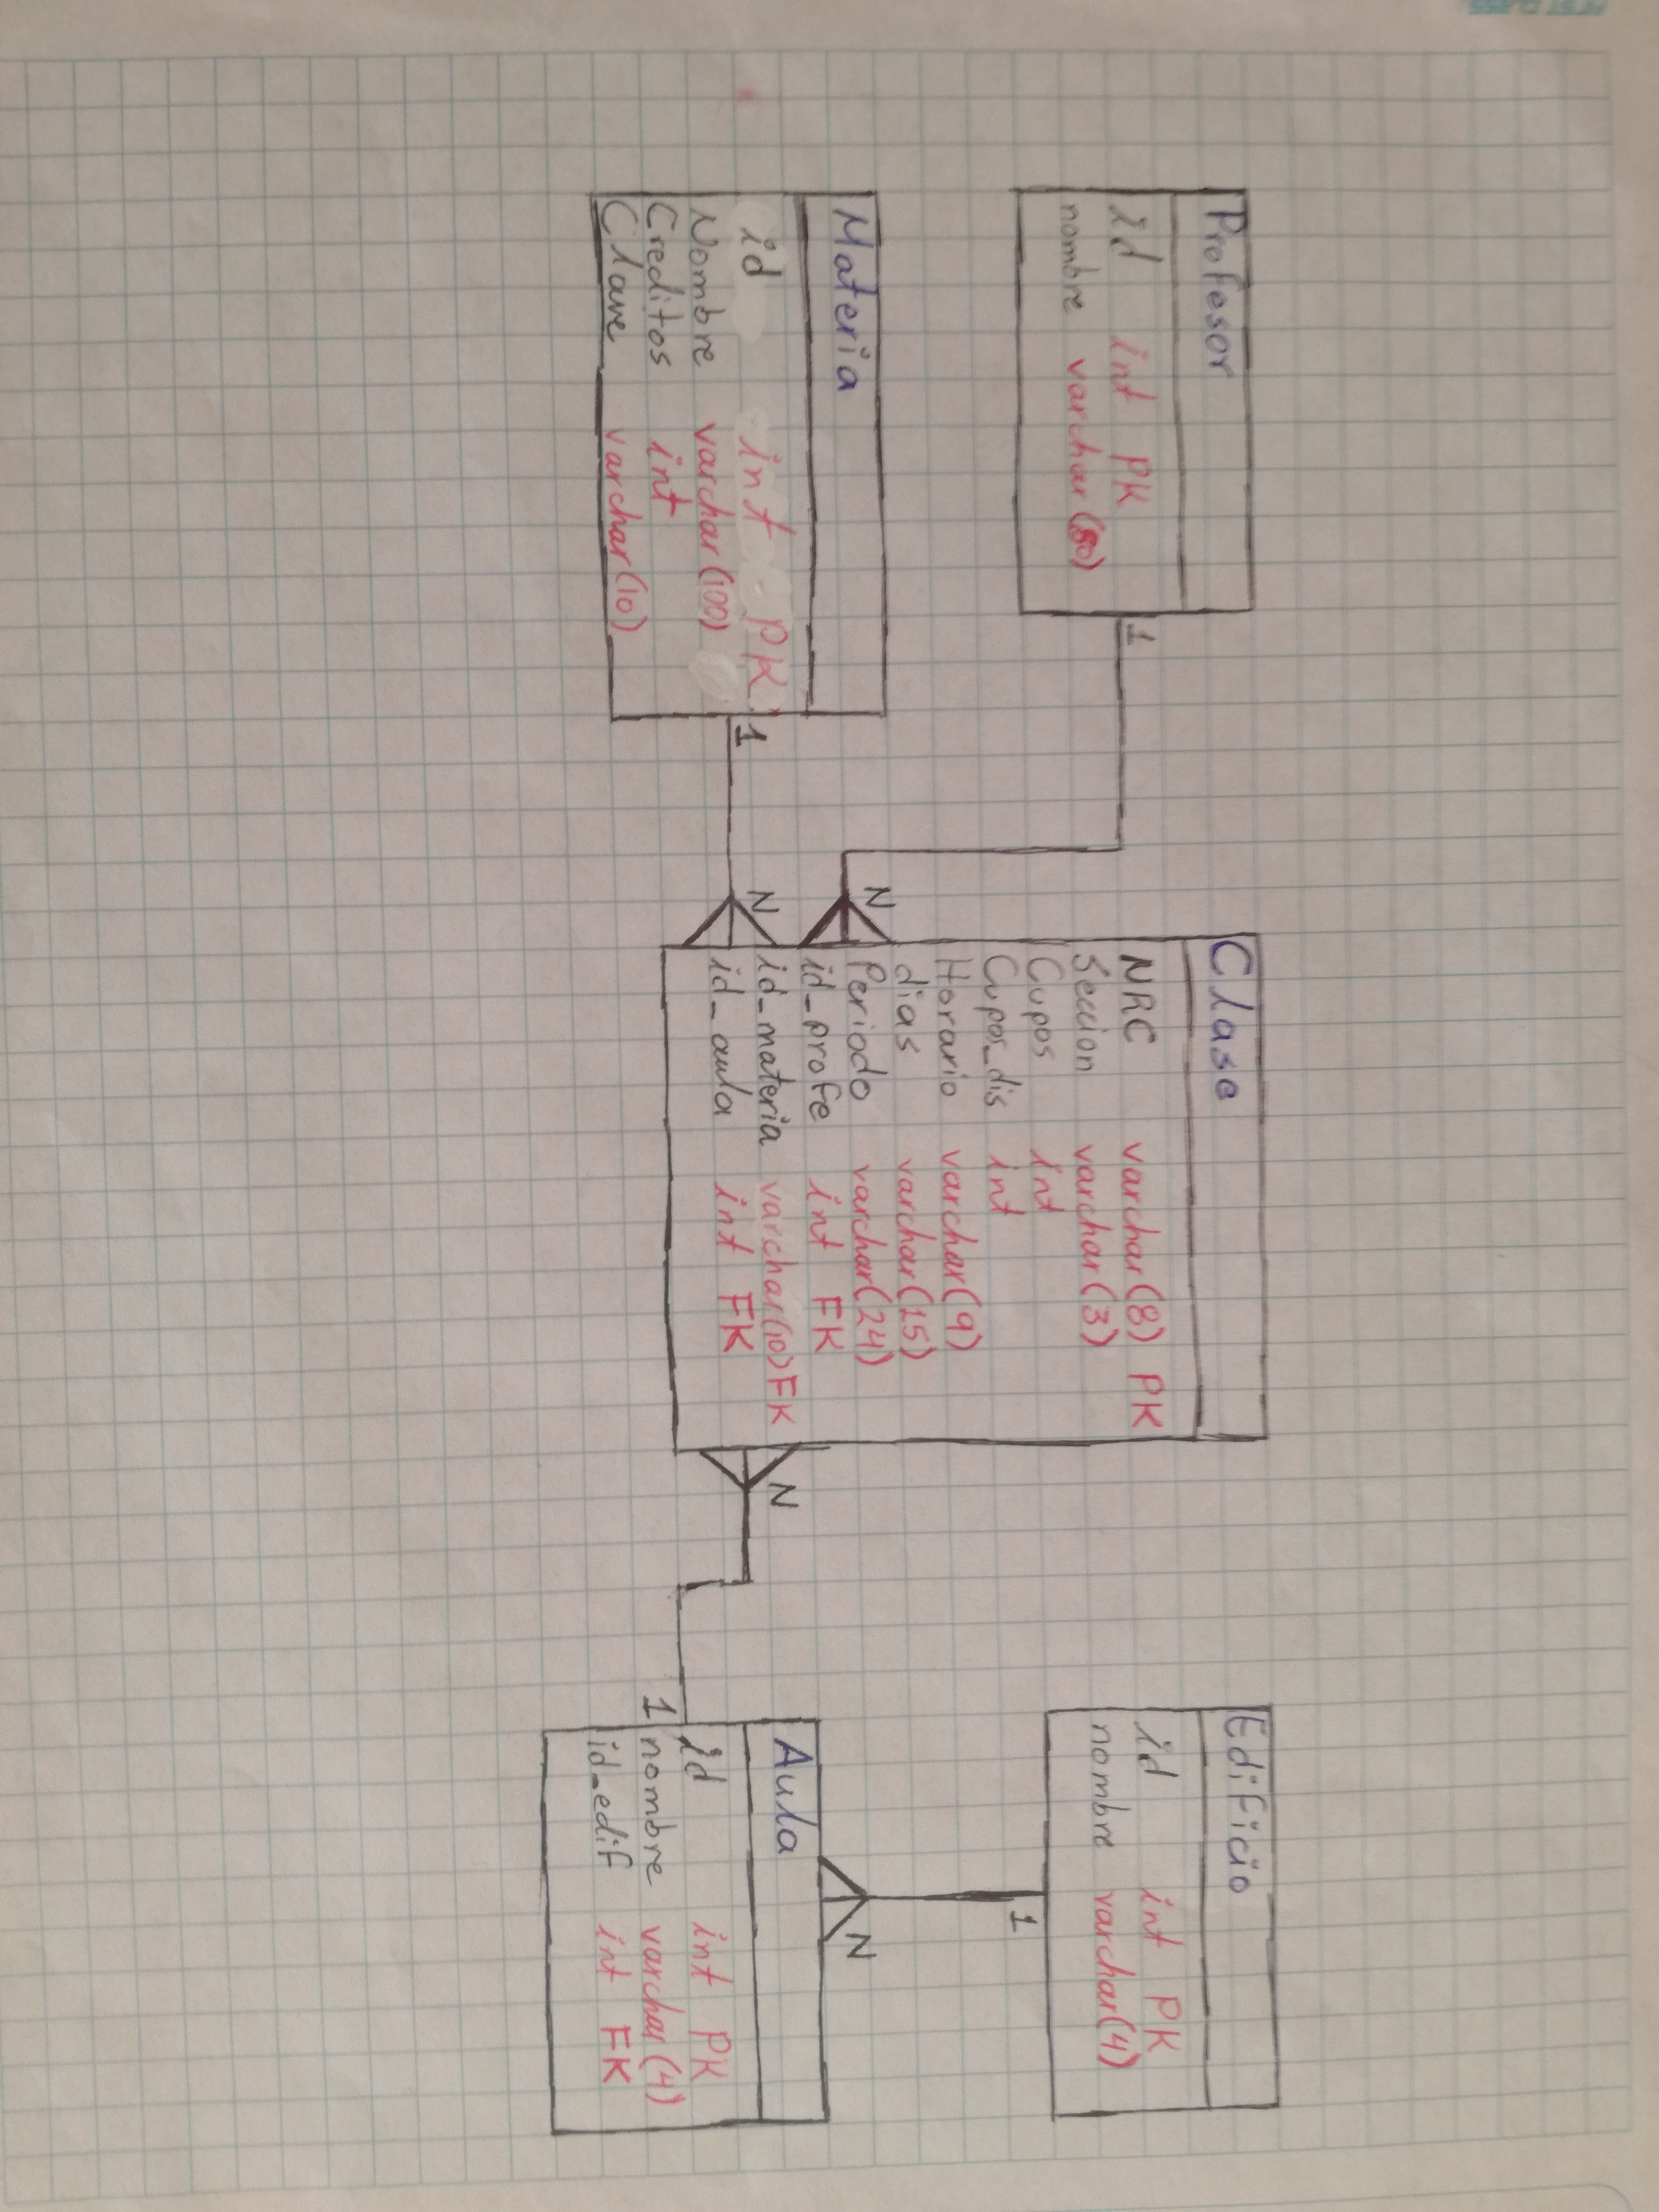 Profesor
id int PK
nombre varchar(80)
1
Materia
id int PK
Nombre varchar(100)
Creditos int
Clave varchar(10)
1
N
N
Clase
NRC varchar(8) PK
Seccion varchar(3)
Cupos int
Cupos_dis int
Horario varchar(9)
dias varchar(15)
Periodo varchar(24)
id_profe int FK
id_materia varchar(10) FK
id_aula int FK
N
Edificio
id int PK
nombre varchar(4)
1
N
Aula
1
id int PK
nombre varchar(4)
id_edif int FK